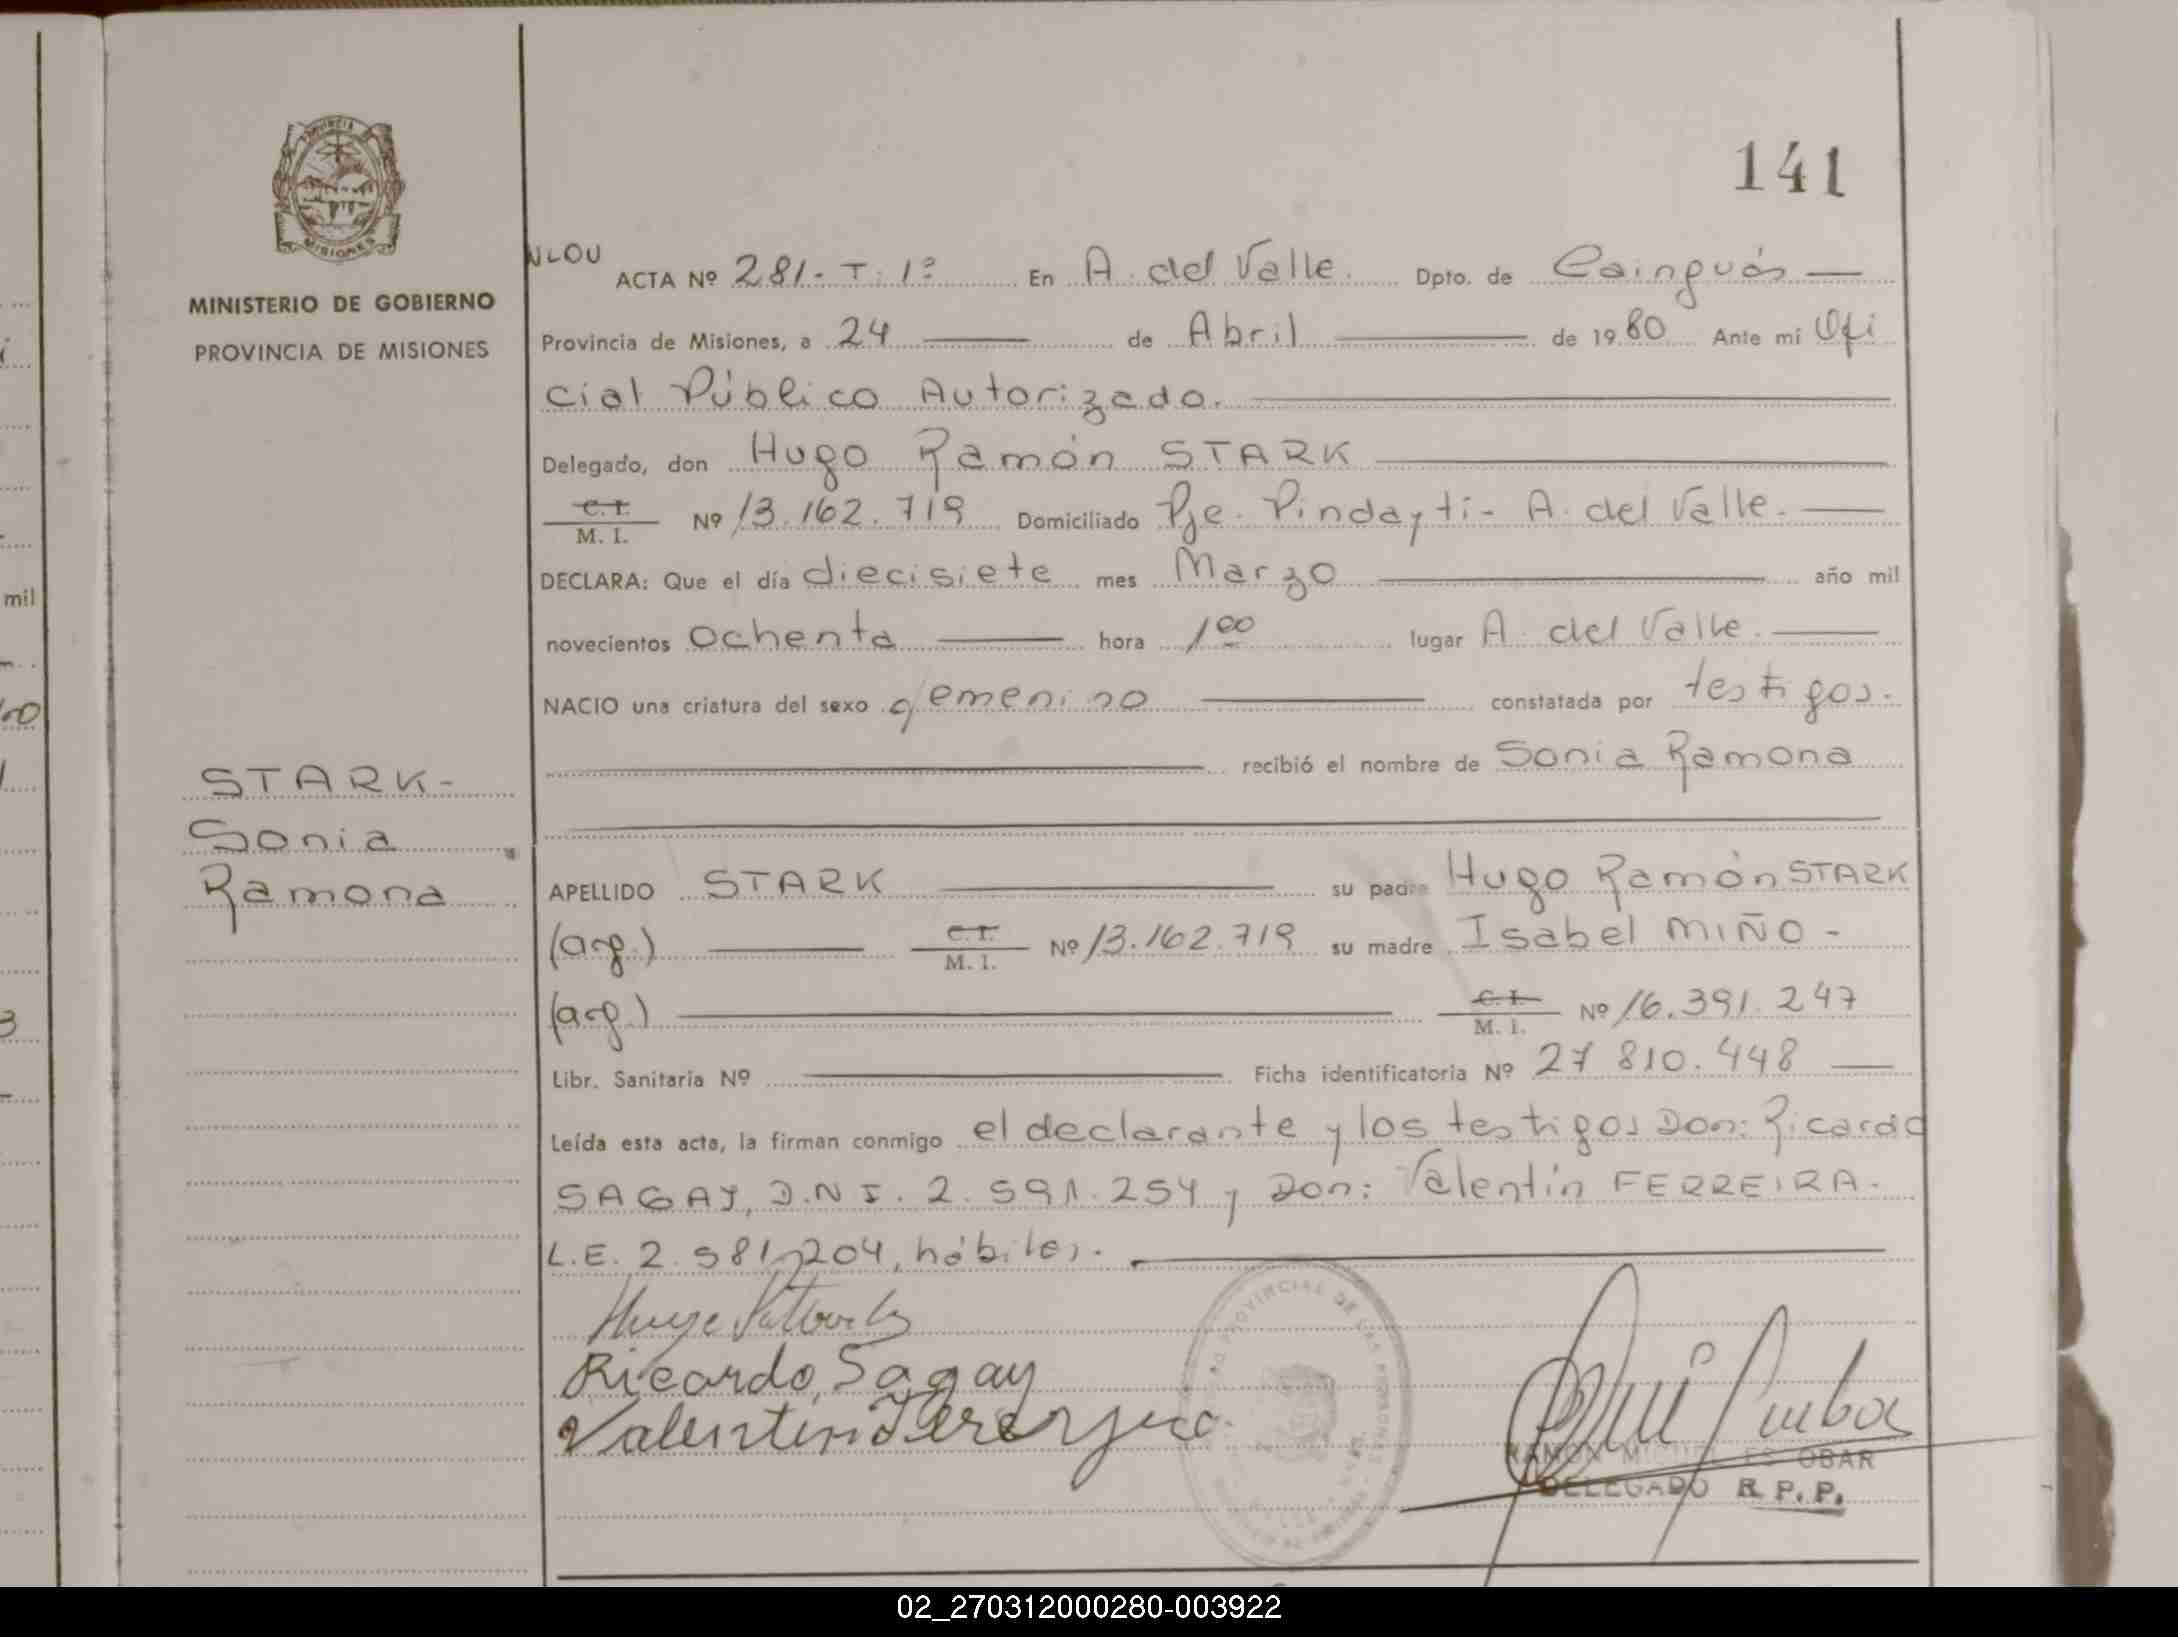 141
MINISTERIO DE GOBIERNO
PROVINCIA DE MISIONES
STARK-
Sonia
Ramona
ACTA Nº 281-T. 1º En A. del Valle. Dpto. de Cainguás
Provincia de Misiones, a 24 de Abril de 1980 Ante mí Ofi
cial Público Autorizado.
Delegado, don Hugo Ramón STARK
C.I. M. I. Nº 13.162.719 Domiciliado Pje. Pindayti - A. del Valle.
DECLARA: Que el día diecisiete mes Marzo año mil
novecientos ochenta hora 1 00 lugar A. del Valle.
NACIO una criatura del sexo femenino constatada por testigos.
recibió el nombre de Sonia Ramona
APELLIDO STARK su padre Hugo Ramón STARK
(arg.) C.I. M. I. Nº 13.162.719 su madre Isabel MIÑO -
(arg.) C.I. M. I. Nº 16.391.247
Libr. Sanitaria Nº Ficha identificatoria Nº 27 810.448
Leída esta acta, la firman conmigo el declarante y los testigos Don: Ricardo
SAGAY, D.N.I. 2.591.254 y Don: Valentín FERREIRA.
L.E. 2.581.204, hábiles.
Ricardo Sagay
Valentin
RAMON MIGUEL ESCOBAR
DELEGADO R. P. P.
02_270312000280-003922